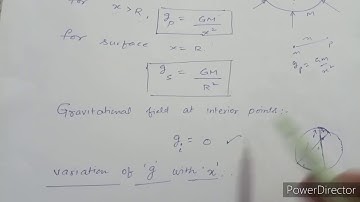 for x > R, g_p = GM/x²
for surface x = R
g_s = GM/R²
M
m P
g_p = GM/x²
Gravitational field at interior points:-
g_i = 0 ✓
variation of 'g' with 'x'.
PowerDirector